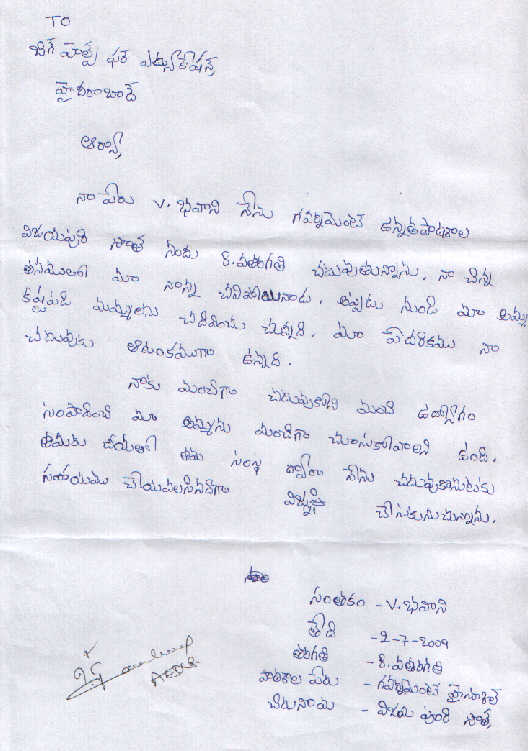 TO
బిగ్ హెల్ప్ ఫర్ ఎడ్యుకేషన్
హైదరాబాద్
ఆర్యా,
నా పేరు V. భవాని నేను గవర్నమెంట్ ఉన్నతపాఠశాల
విజయపురి సౌత్ నందు 8.వతరగతి చదువుతున్నాను. నా చిన్న
తనములో మా నాన్న చనిపోయినాడు. అప్పుడు నుండి మా అమ్మ
కష్టపడి మమ్ములను చదివించు చున్నది. మా పేదరికము నా
చదువుకు ఆటంకముగా ఉన్నది.
నాకు మంచిగా చదువుకొని మంచి ఉద్యోగం
సంపాదించి మా అమ్మను మంచిగా చూసుకోవాలని ఉంది.
తమరు దయతో తమ సంస్థ ద్వారా నేను చదువుకొనుటకు
సహాయము చేయవలసినదిగా విజ్ఞప్తి చేసుకునుచున్నాను.
సంతకం - V. భవాని
తేది - 2-7-2009
తరగతి - 8.వతరగతి
పాఠశాల పేరు - గవర్నమెంట్ హైస్కూల్
చిరునామ - విజయ పురి సౌత్